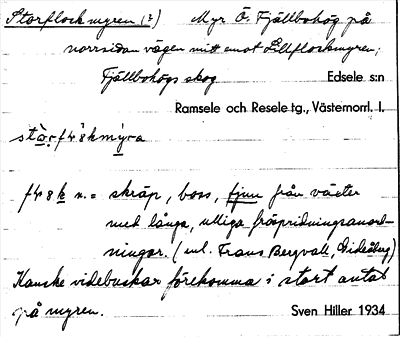 Storflockmyren (?) Myr Ö. Fjällbohög på
norrsidan vägen mitt emot Lillflockmyren;
Fjällbohögs skog Edsele s:n
Ramsele och Resele tg., Västernorrl. l.
n. = skräp, boss, fjun från växter
med långa, ulliga fröspridningsanord-
ningar. (enl. Frans Bergvall, Gideåberg)
Kanske videbuskar förekomma i stort antal
på myren. Sven Hiller 1934